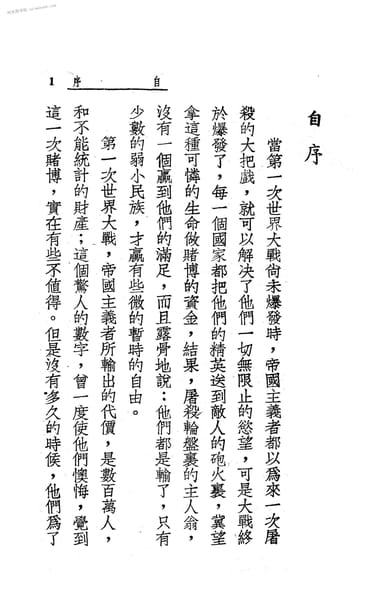 自序
當第一次世界大戰尙未爆發時，帝國主義者都以爲來一次屠
殺的大把戲，就可以解决了他們一切無限止的慾望，可是大戰終
於爆發了，每一個國家都把他們的精英送到敵人的砲火裏，冀望
拿這種可憐的生命做賭博的資金，結果，屠殺輪盤裏的主人翁，
沒有一個贏到他們的滿足，而且露骨地說：他們都是輸了，只有
少數的弱小民族，才贏有些微的暫時的自由。
第一次世界大戰，帝國主義者所輸出的代價，是數百萬人，
和不能統計的財產；這個驚人的數字，曾一度使他們懊悔，覺到
這一次賭博，實在有些不值得。但是沒有多久的時候，他們爲了
自序 1